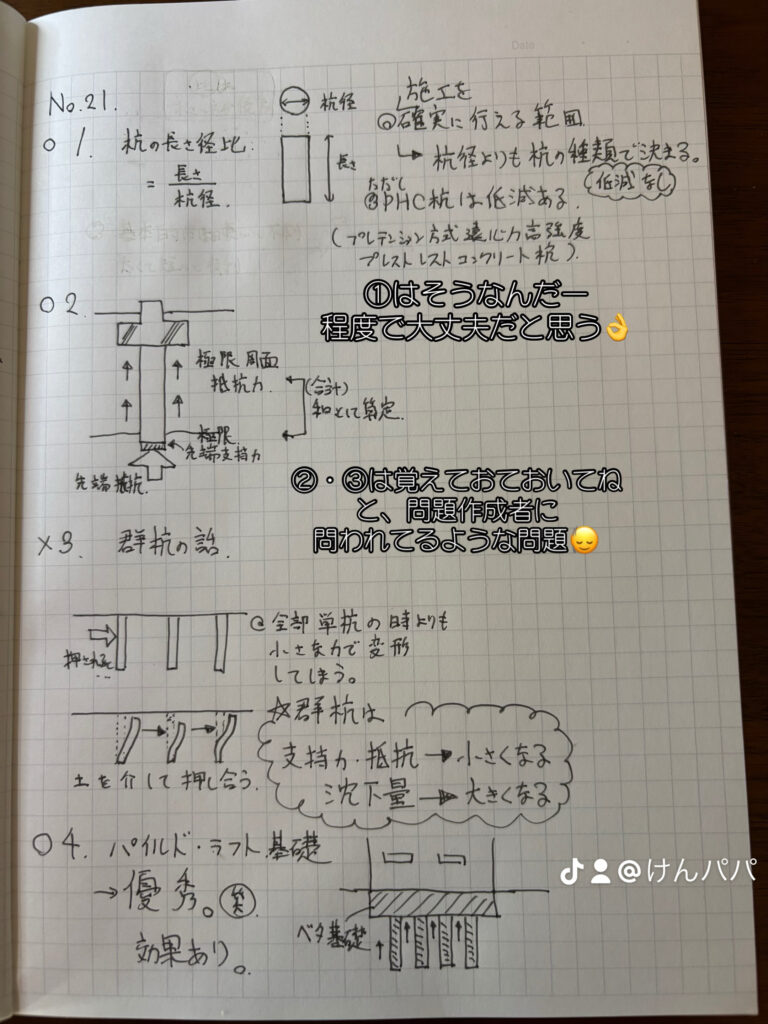 Date
No.21.
○ 1. 杭の長さ径比.
= 長さ
杭径.
杭径
長さ
施工を
◎確実に行える範囲.
↳ 杭径よりも杭の種類で決まる。
低減なし
ただし
PHC杭は低減ある.
(プレテンション方式遠心力高強度
プレストレストコンクリート杭).
①はそうなんだー
程度で大丈夫だと思う👌
○ 2.
極限周面
抵抗力.
(合計)
和として算定.
極限
先端支持力
先端抵抗.
②・③は覚えておておいてね
と、問題作成者に
問われてるような問題😌
× 3. 群杭の話.
押されると
…
◎全部単杭の時よりも
小さな力で変形
してしまう。
土を介して押し合う.
☆群杭は
支持力・抵抗 → 小さくなる
沈下量 → 大きくなる
○ 4. パイルド・ラフト基礎
→優秀。
効果あり。
ベタ基礎
@けんパパ